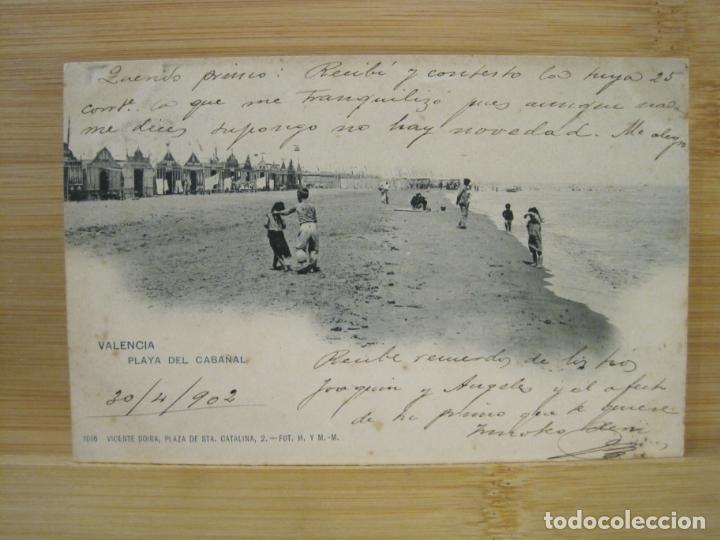 Querido primo: Recibí y contesto la tuya 25
corrte. lo que me tranquilizó pues aunque nada
me dices supongo no hay novedad. Me alegro
VALENCIA
PLAYA DEL CABAÑAL
30/4/902
Recibe recuerdos de los tios
Joaquin y Angeles y el afecto
de tu primo que te quiere
1016 VICENTE SOIRA, PLAZA DE STA. CATALINA, 2.—FOT. H. Y M.-M.
todocoleccion
todocoleccion.net